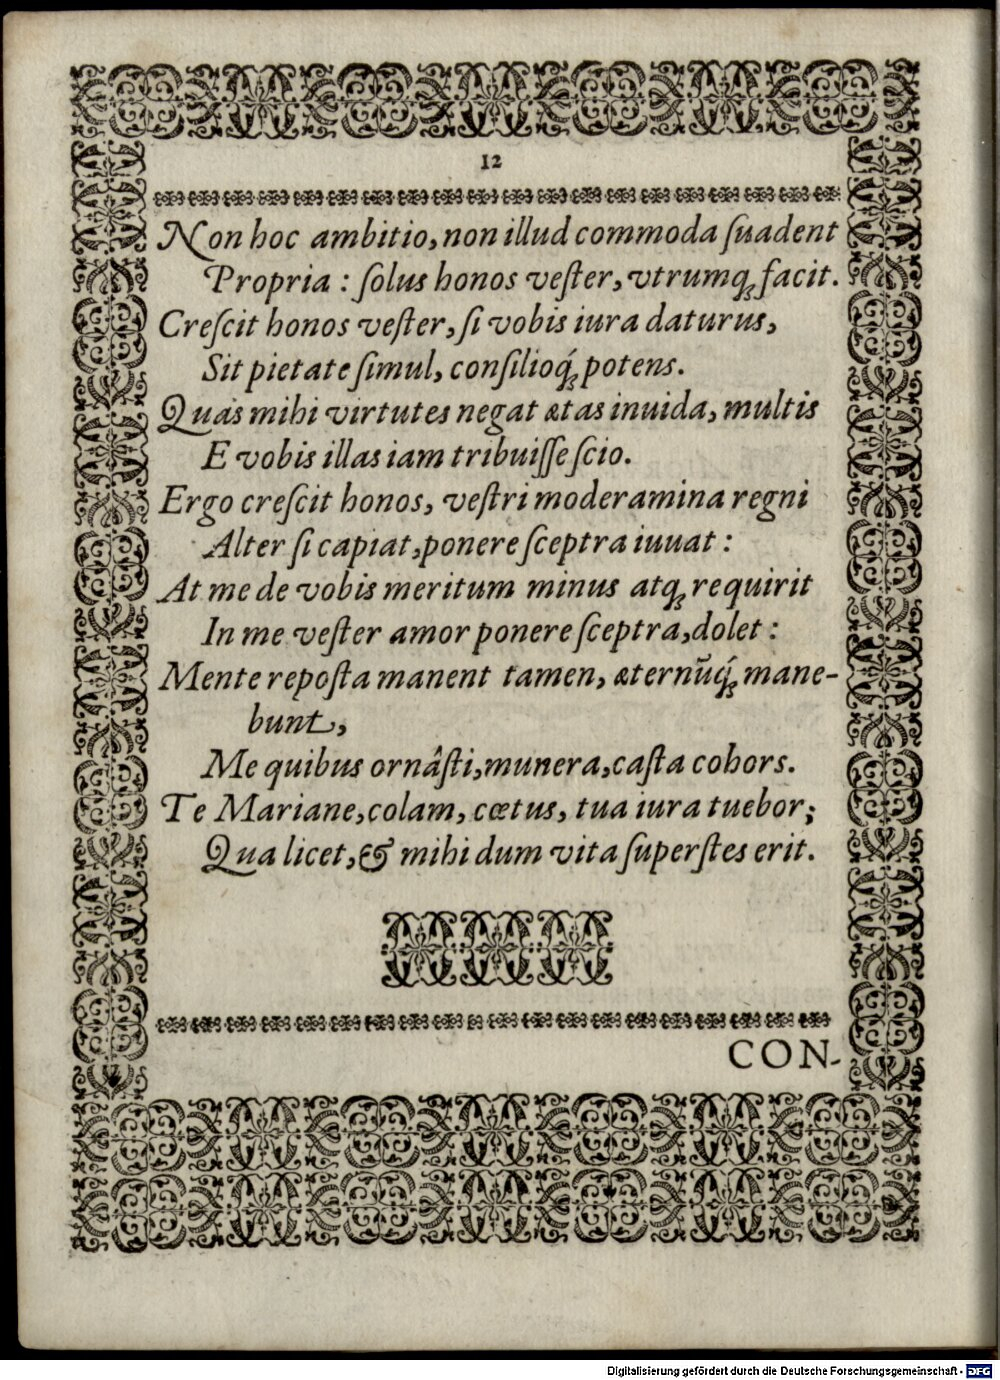 12
Non hoc ambitio, non illud commoda ſuadent
Propria : ſolus honos veſter, vtrumq́; facit.
Creſcit honos veſter, ſi vobis iura daturus,
Sit pietate ſimul, conſilioq́; potens.
Quas mihi virtutes negat ætas inuida, multis
E vobis illas iam tribuiſſe ſcio.
Ergo creſcit honos, veſtri moderamina regni
Alter ſi capiat, ponere ſceptra iuuat :
At me de vobis meritum minus atq; requirit
In me veſter amor ponere ſceptra, dolet :
Mente repoſta manent tamen, æternũq́; mane-
bunt,
Me quibus ornâſti, munera, caſta cohors.
Te Mariane, colam, cœtus, tua iura tuebor;
Qua licet, & mihi dum vita ſuperſtes erit.
CON-
Digitalisierung gefördert durch die Deutsche Forschungsgemeinschaft - DFG